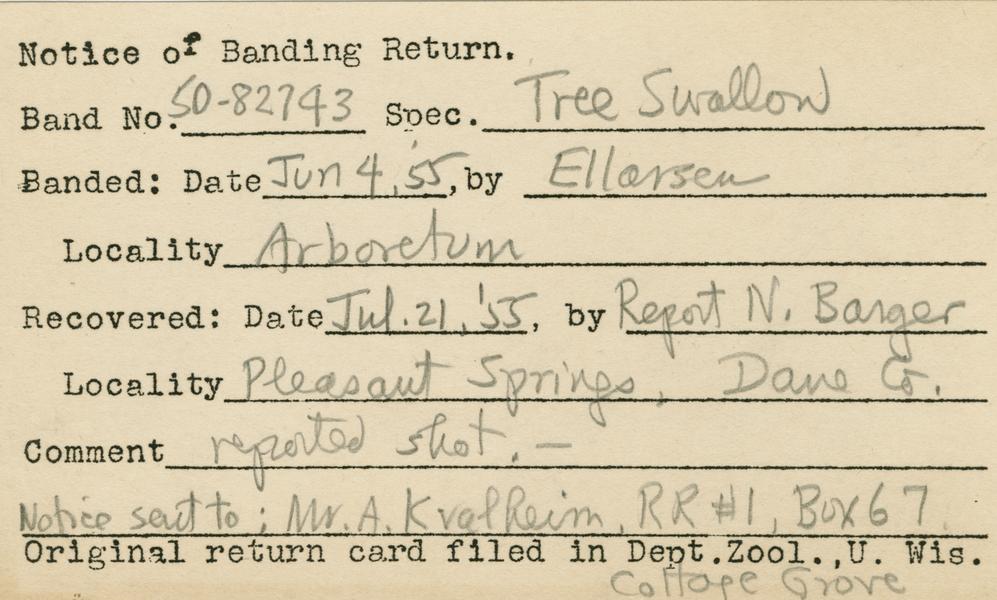 Notice of Banding Return.
Band No. 50-82743 Spec. Tree Swallow
Banded: Date Jun 4, '55, by Ellarsen
Locality Arboretum
Recovered: Date Jul. 21, '55, by Report N. Barger
Locality Pleasant Springs, Dane Co.
Comment reported shot. —
Notice sent to: Mr. A. Kvalheim, RR #1, Box 67.
Original return card filed in Dept.Zool.,U. Wis.
Cottage Grove